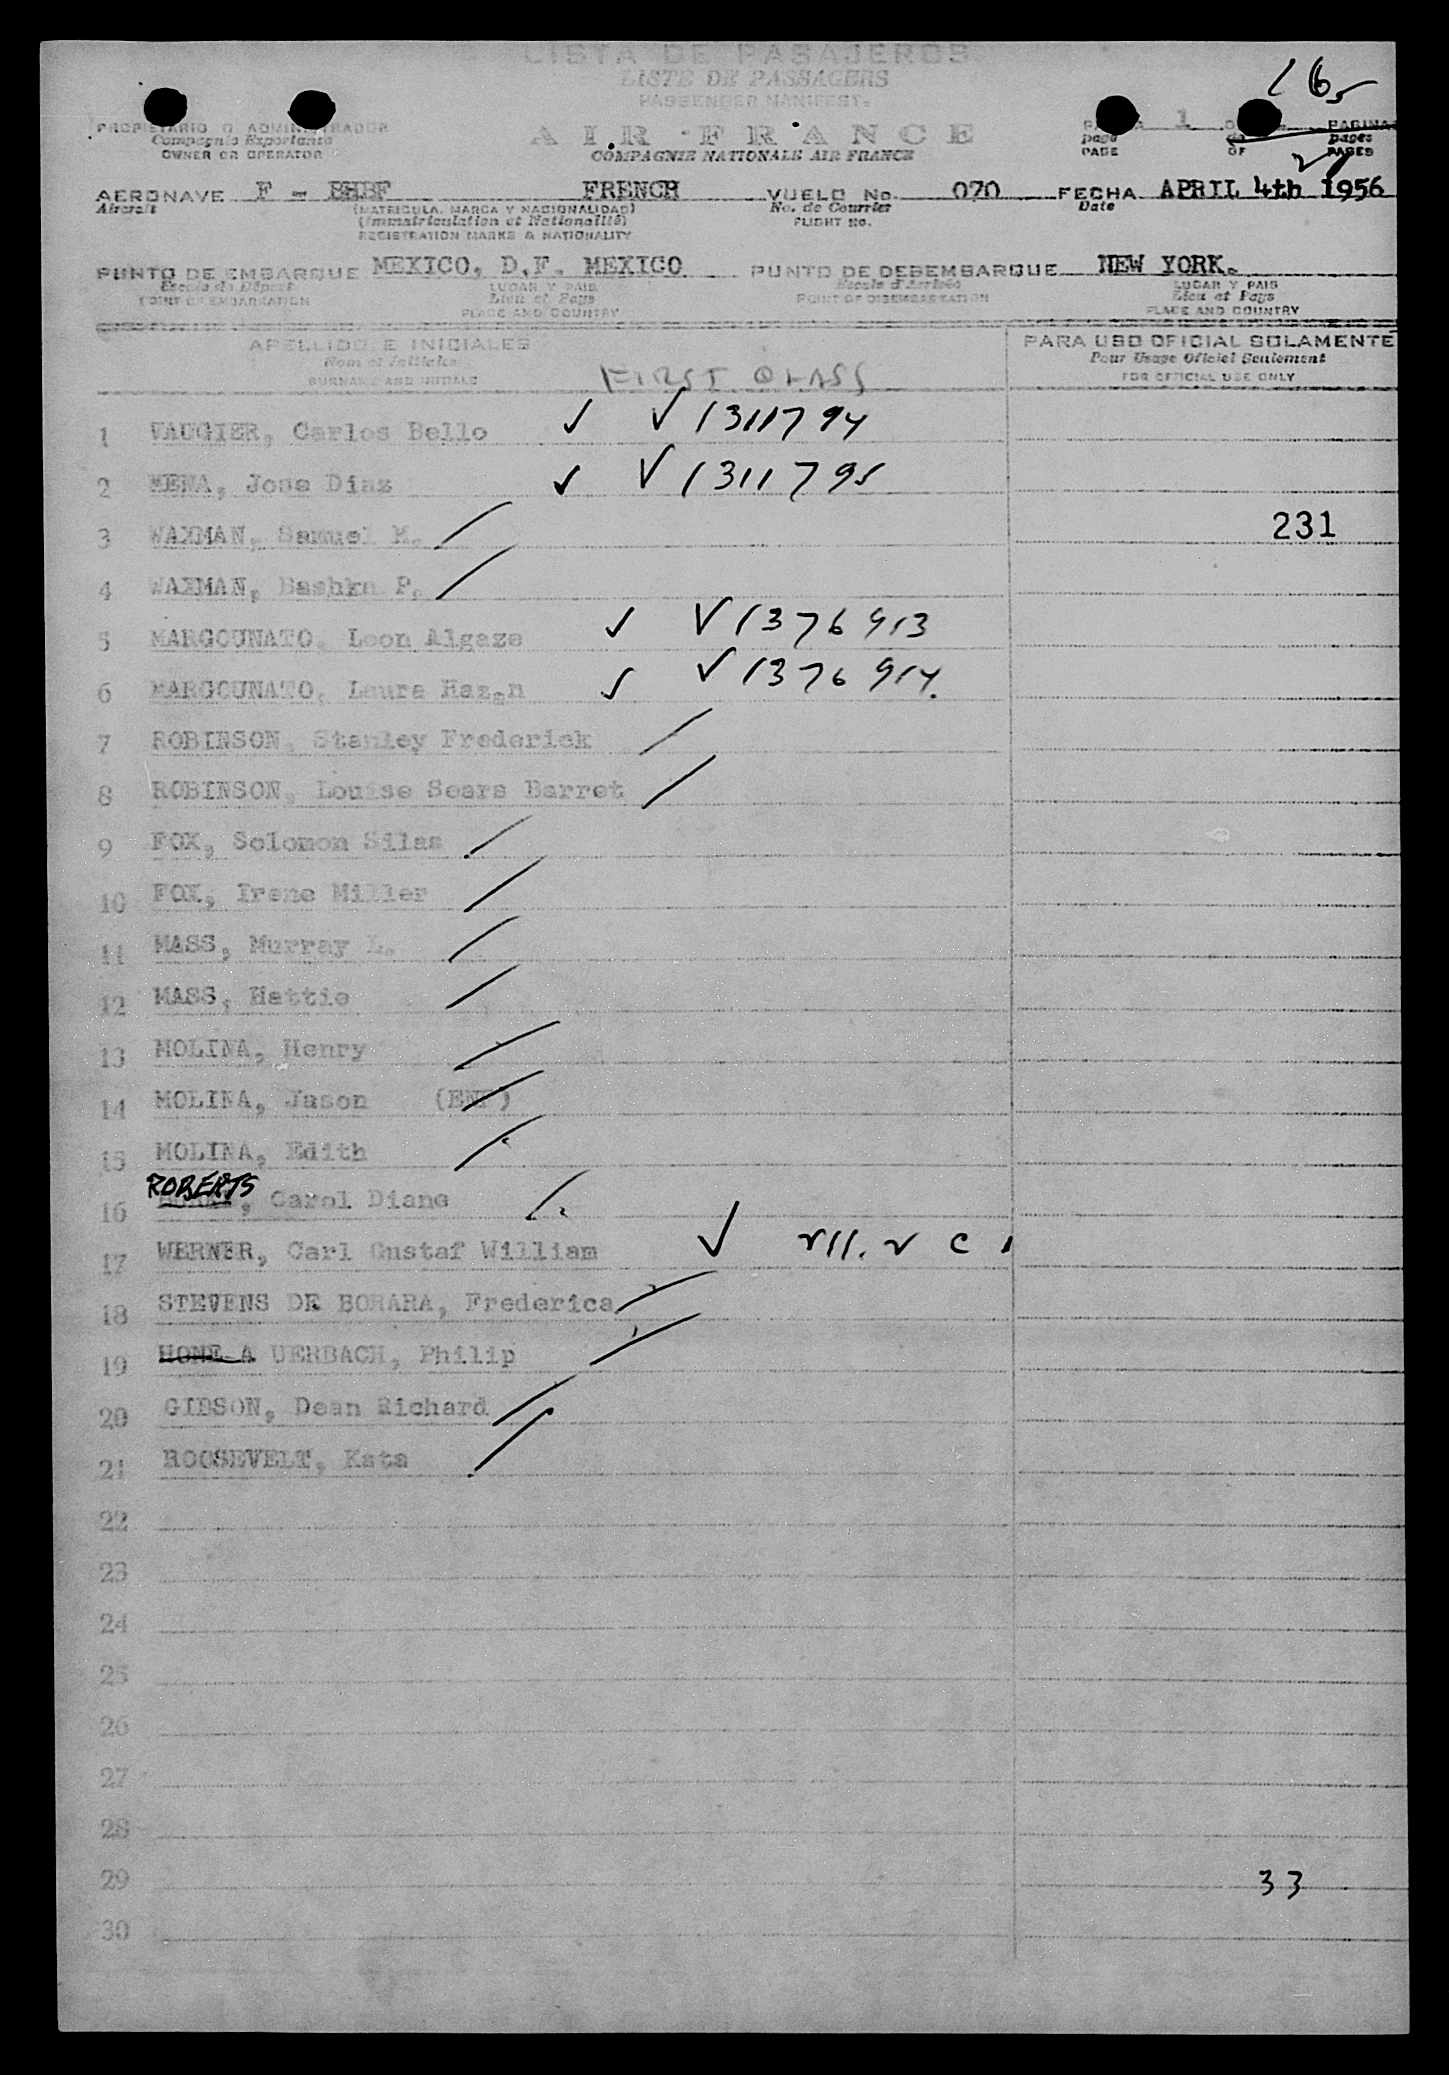 LISTA DE PASAJEROS
LISTE DE PASSAGERS
PASSENGER MANIFEST
165
PROPIETARIO O ADMINISTRADOR
Compagnie Exportante
OWNER OR OPERATOR
AIR FRANCE
COMPAGNIE NATIONALE AIR FRANCE
1 PAGINAS
page de pages
PAGE OF PAGES
AERONAVE F - BHBF FRENCH VUELO No. 070 FECHA APRIL 4th 1956
Aircraft (MATRICULA, MARCA Y NACIONALIDAD) No. de Courrier Date
(Immatriculation et Nationalité) FLIGHT No.
REGISTRATION MARKS & NATIONALITY
PUNTO DE EMBARQUE MEXICO, D.F. MEXICO PUNTO DE DESEMBARQUE NEW YORK.
Escale de Départ LUGAR Y PAIS Escale d'Arrivée LUGAR Y PAIS
POINT OF EMBARKATION Lieu et Pays POINT OF DISEMBARKATION Lieu et Pays
PLACE AND COUNTRY PLACE AND COUNTRY
APELLIDO E INICIALES PARA USO OFICIAL SOLAMENTE
Nom et Initiales Pour Usage Oficiel Seulement
SURNAME AND INITIALS FIRST CLASS FOR OFFICIAL USE ONLY
1 VAUGIER, Carlos Bello ✓ ✓ 1311794
2 MENA, Jose Diaz ✓ ✓ 1311795
3 WAXMAN, Samuel M. 231
4 WAXMAN, Bashka P.
5 MARGOUNATO, Leon Algaze ✓ ✓ 1376913
6 MARGOUNATO, Laura Hazan ✓ ✓ 1376914.
7 ROBINSON, Stanley Frederick
8 ROBINSON, Louise Sears Barret
9 FOX, Solomon Silas
10 FOX, Irene Miller
11 MASS, Murray L.
12 MASS, Hattie
13 MOLINA, Henry
14 MOLINA, Jason (ENF)
15 MOLINA, Edith
ROBERTS
16 Carol Diane
17 WERNER, Carl Gustaf William ✓
18 STEVENS DE BORARA, Frederica
19 HONE A UERBACH, Philip
20 GIBSON, Dean Richard
21 ROOSEVELT, Kate
22
23
24
25
26
27
28
29 33
30